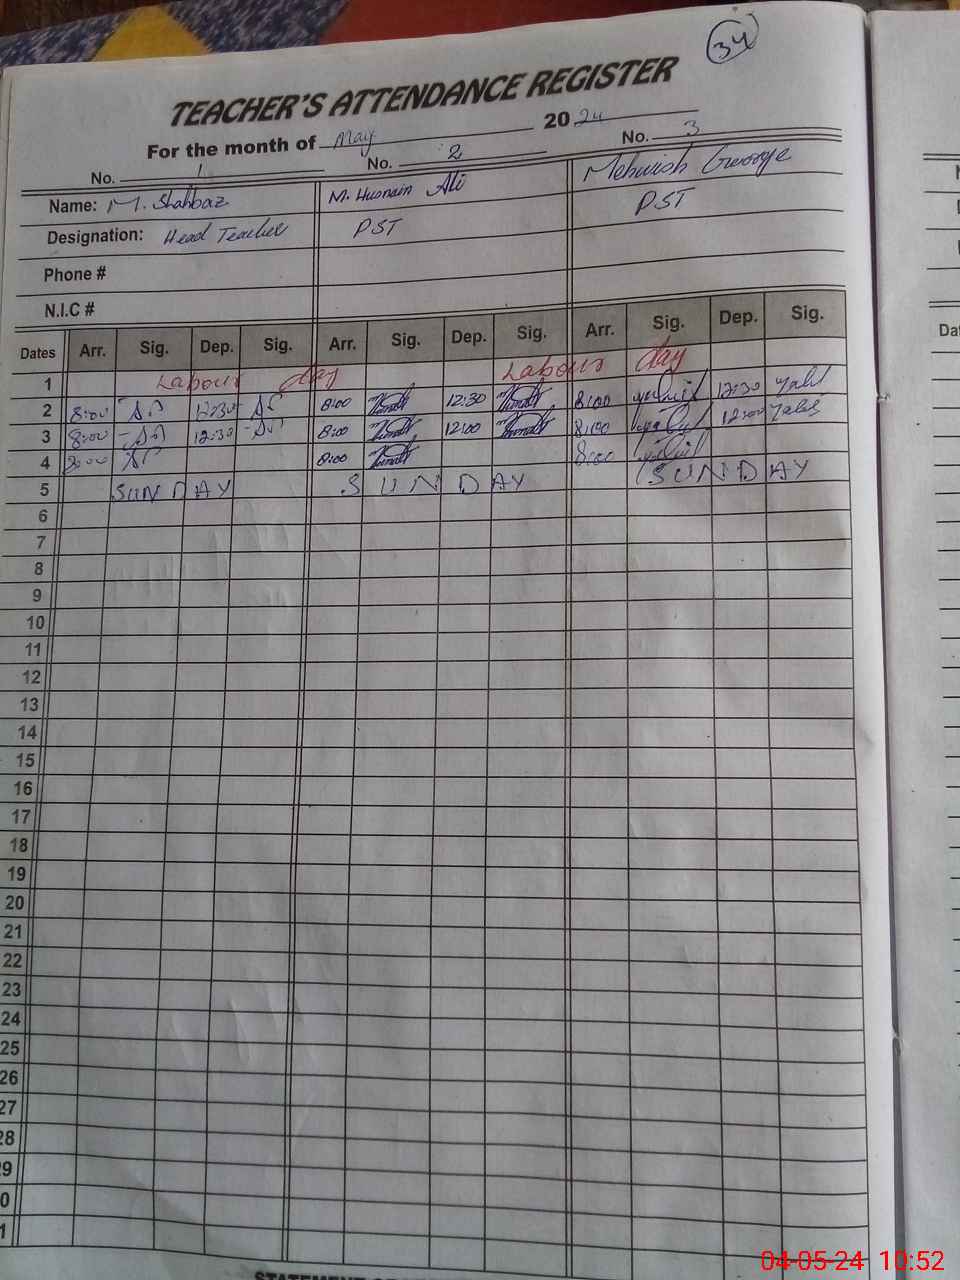 34
TEACHER'S ATTENDANCE REGISTER
For the month of May 2024
No. 1 No. 2 No. 3
Name: M. Shahbaz M. Husnain Ali Mehwish George
Designation: Head Teacher PST PST
Phone #
N.I.C #
Dates Arr. Sig. Dep. Sig. Arr. Sig. Dep. Sig. Arr. Sig. Dep. Sig.
1 Labour day Labour day
2 8:00 12:30 8:00 12:30 8:00 12:30
3 8:00 12:30 8:00 12:00 8:00 12:00
4 8:00 8:00 8:00
5 SUNDAY SUNDAY SUNDAY
6
7
8
9
10
11
12
13
14
15
16
17
18
19
20
21
22
23
24
25
26
27
28
9
0
1
04-05-24 10:52